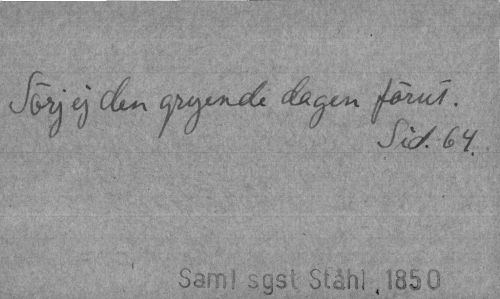 Sörj ej den gryende dagen förut.
Sid. 64.
Saml sgst Ståhl, 1850